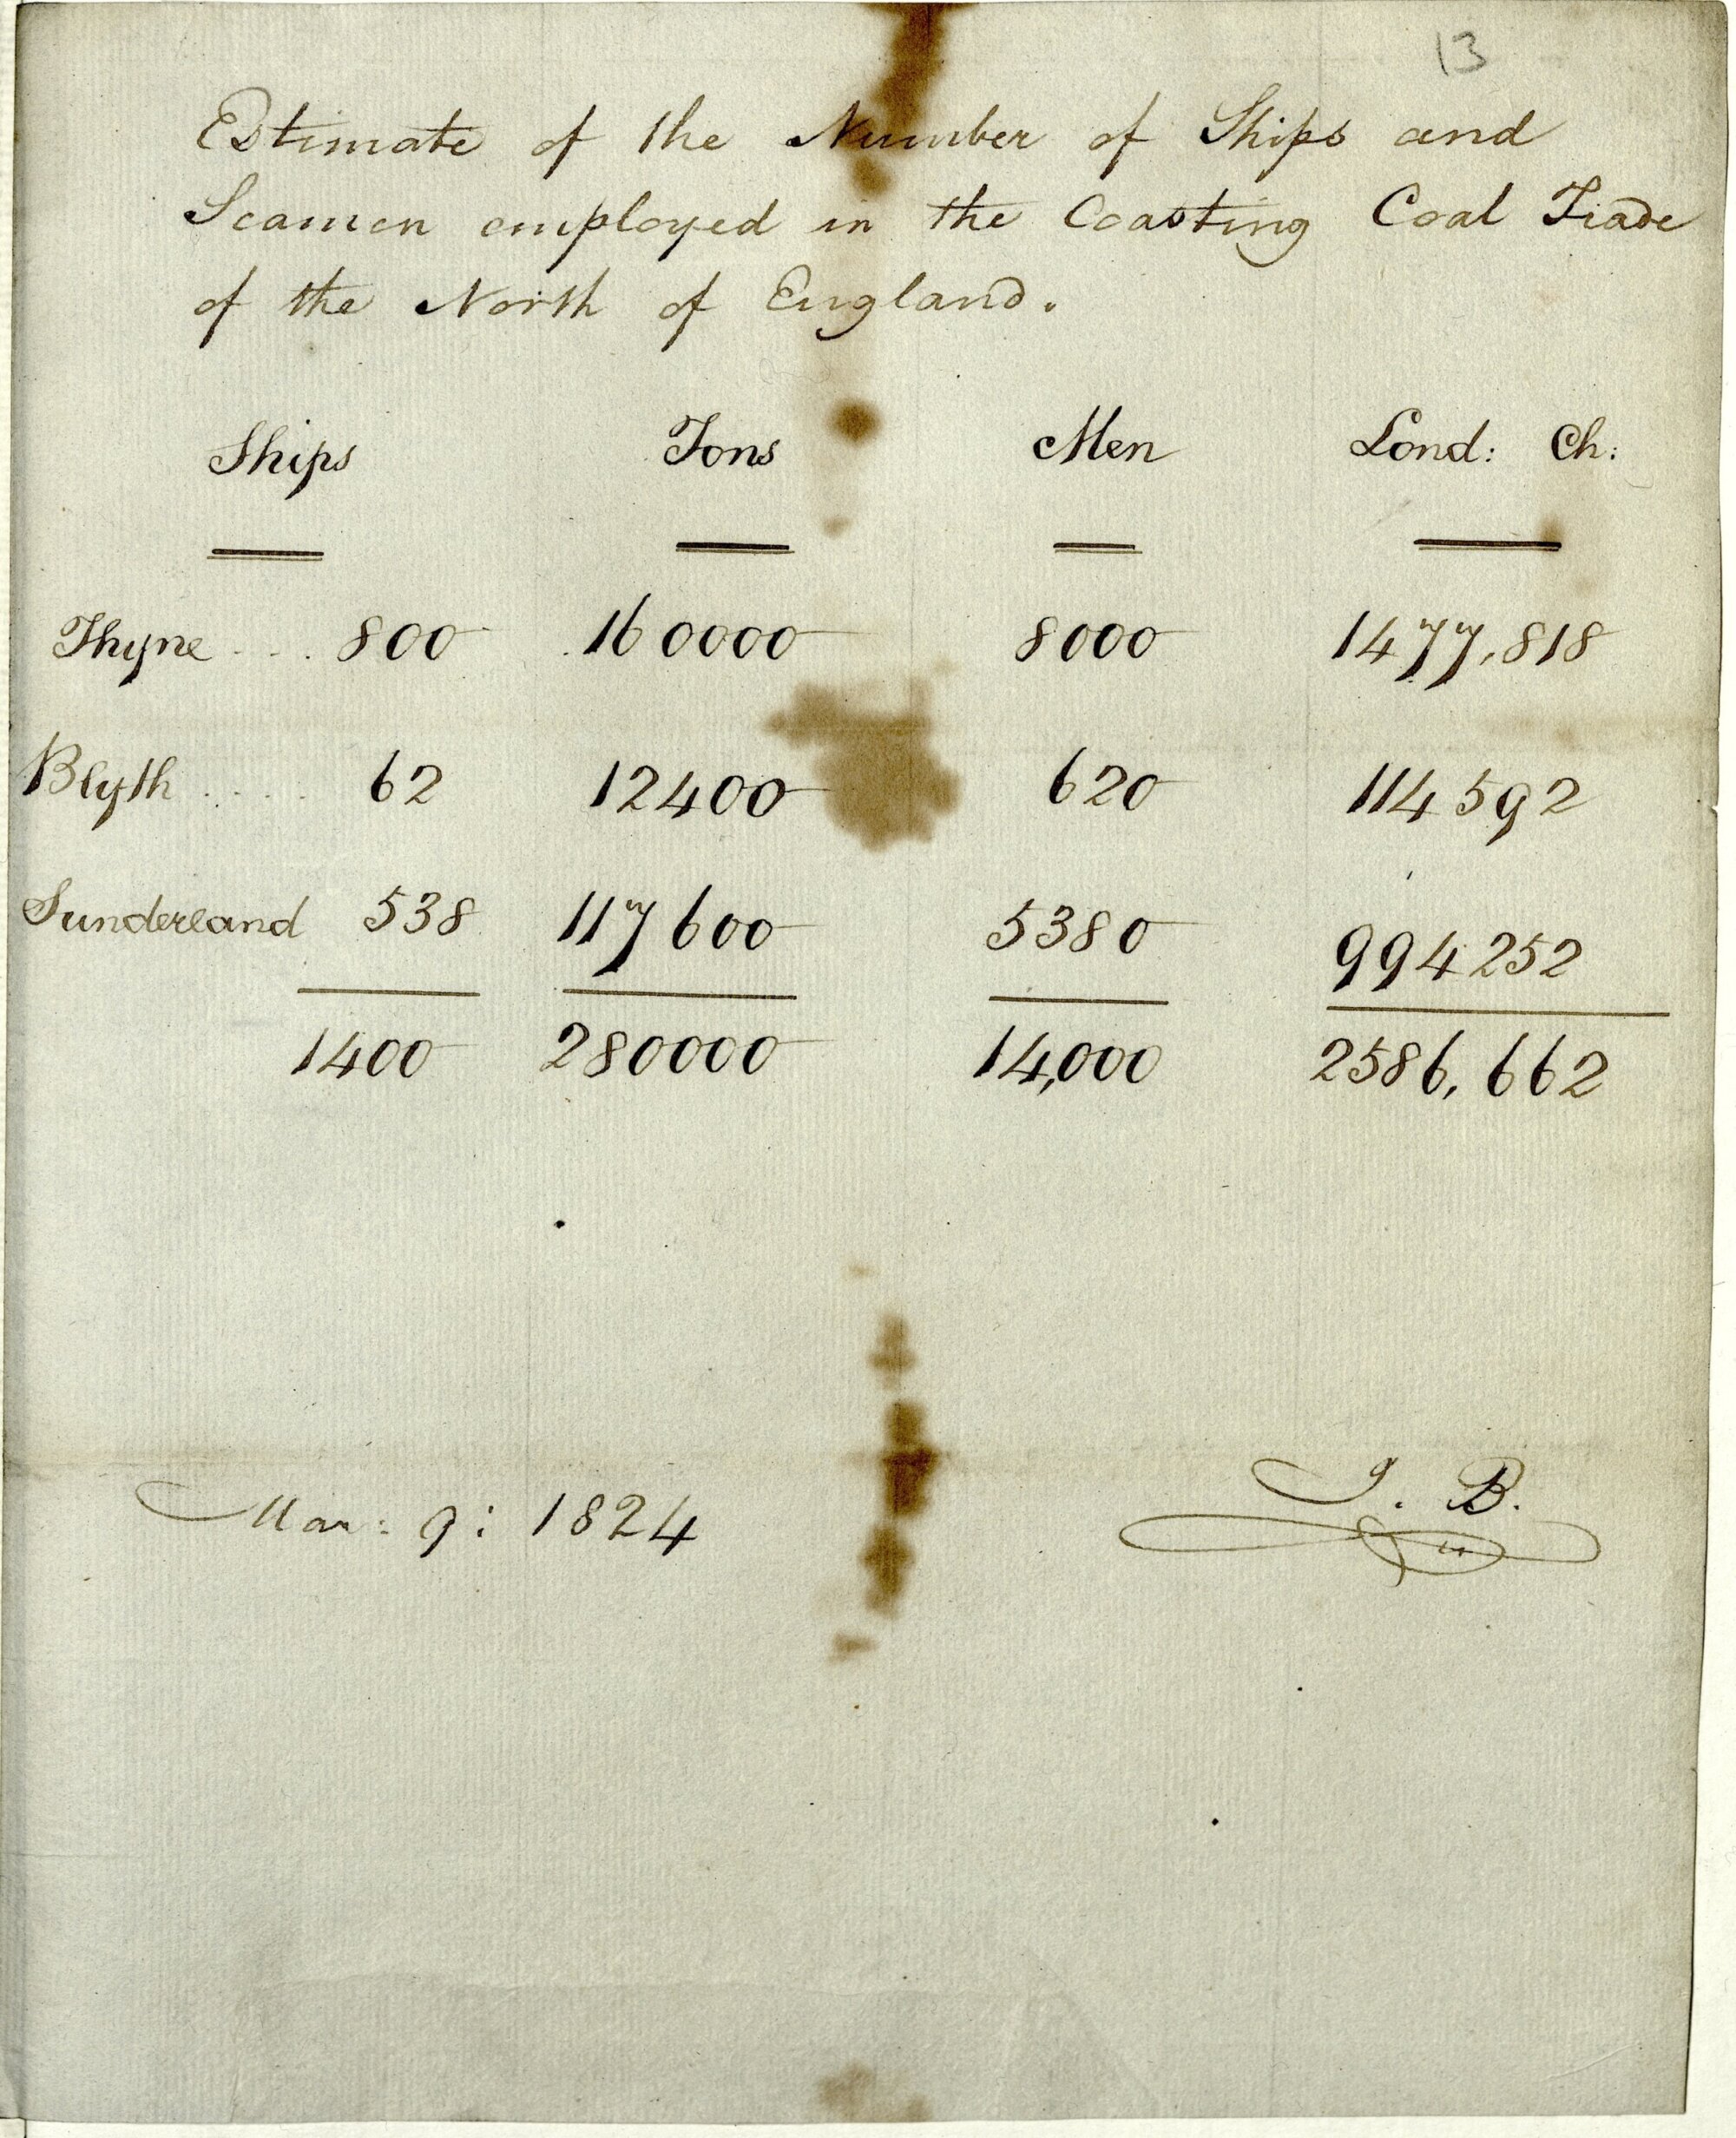 13
Estimate of the Number of Ships and
Seamen employed in the Coasting Coal Trade
of the North of England.
Ships Tons Men Lond: Ch:
Thyne . . . 800 160000 8000 1477,818
Blyth . . . . 62 12400 620 114592
Sunderland 538 117600 5380 994252
1400 280000 14,000 2586,662
Mar: 9: 1824 J. B.